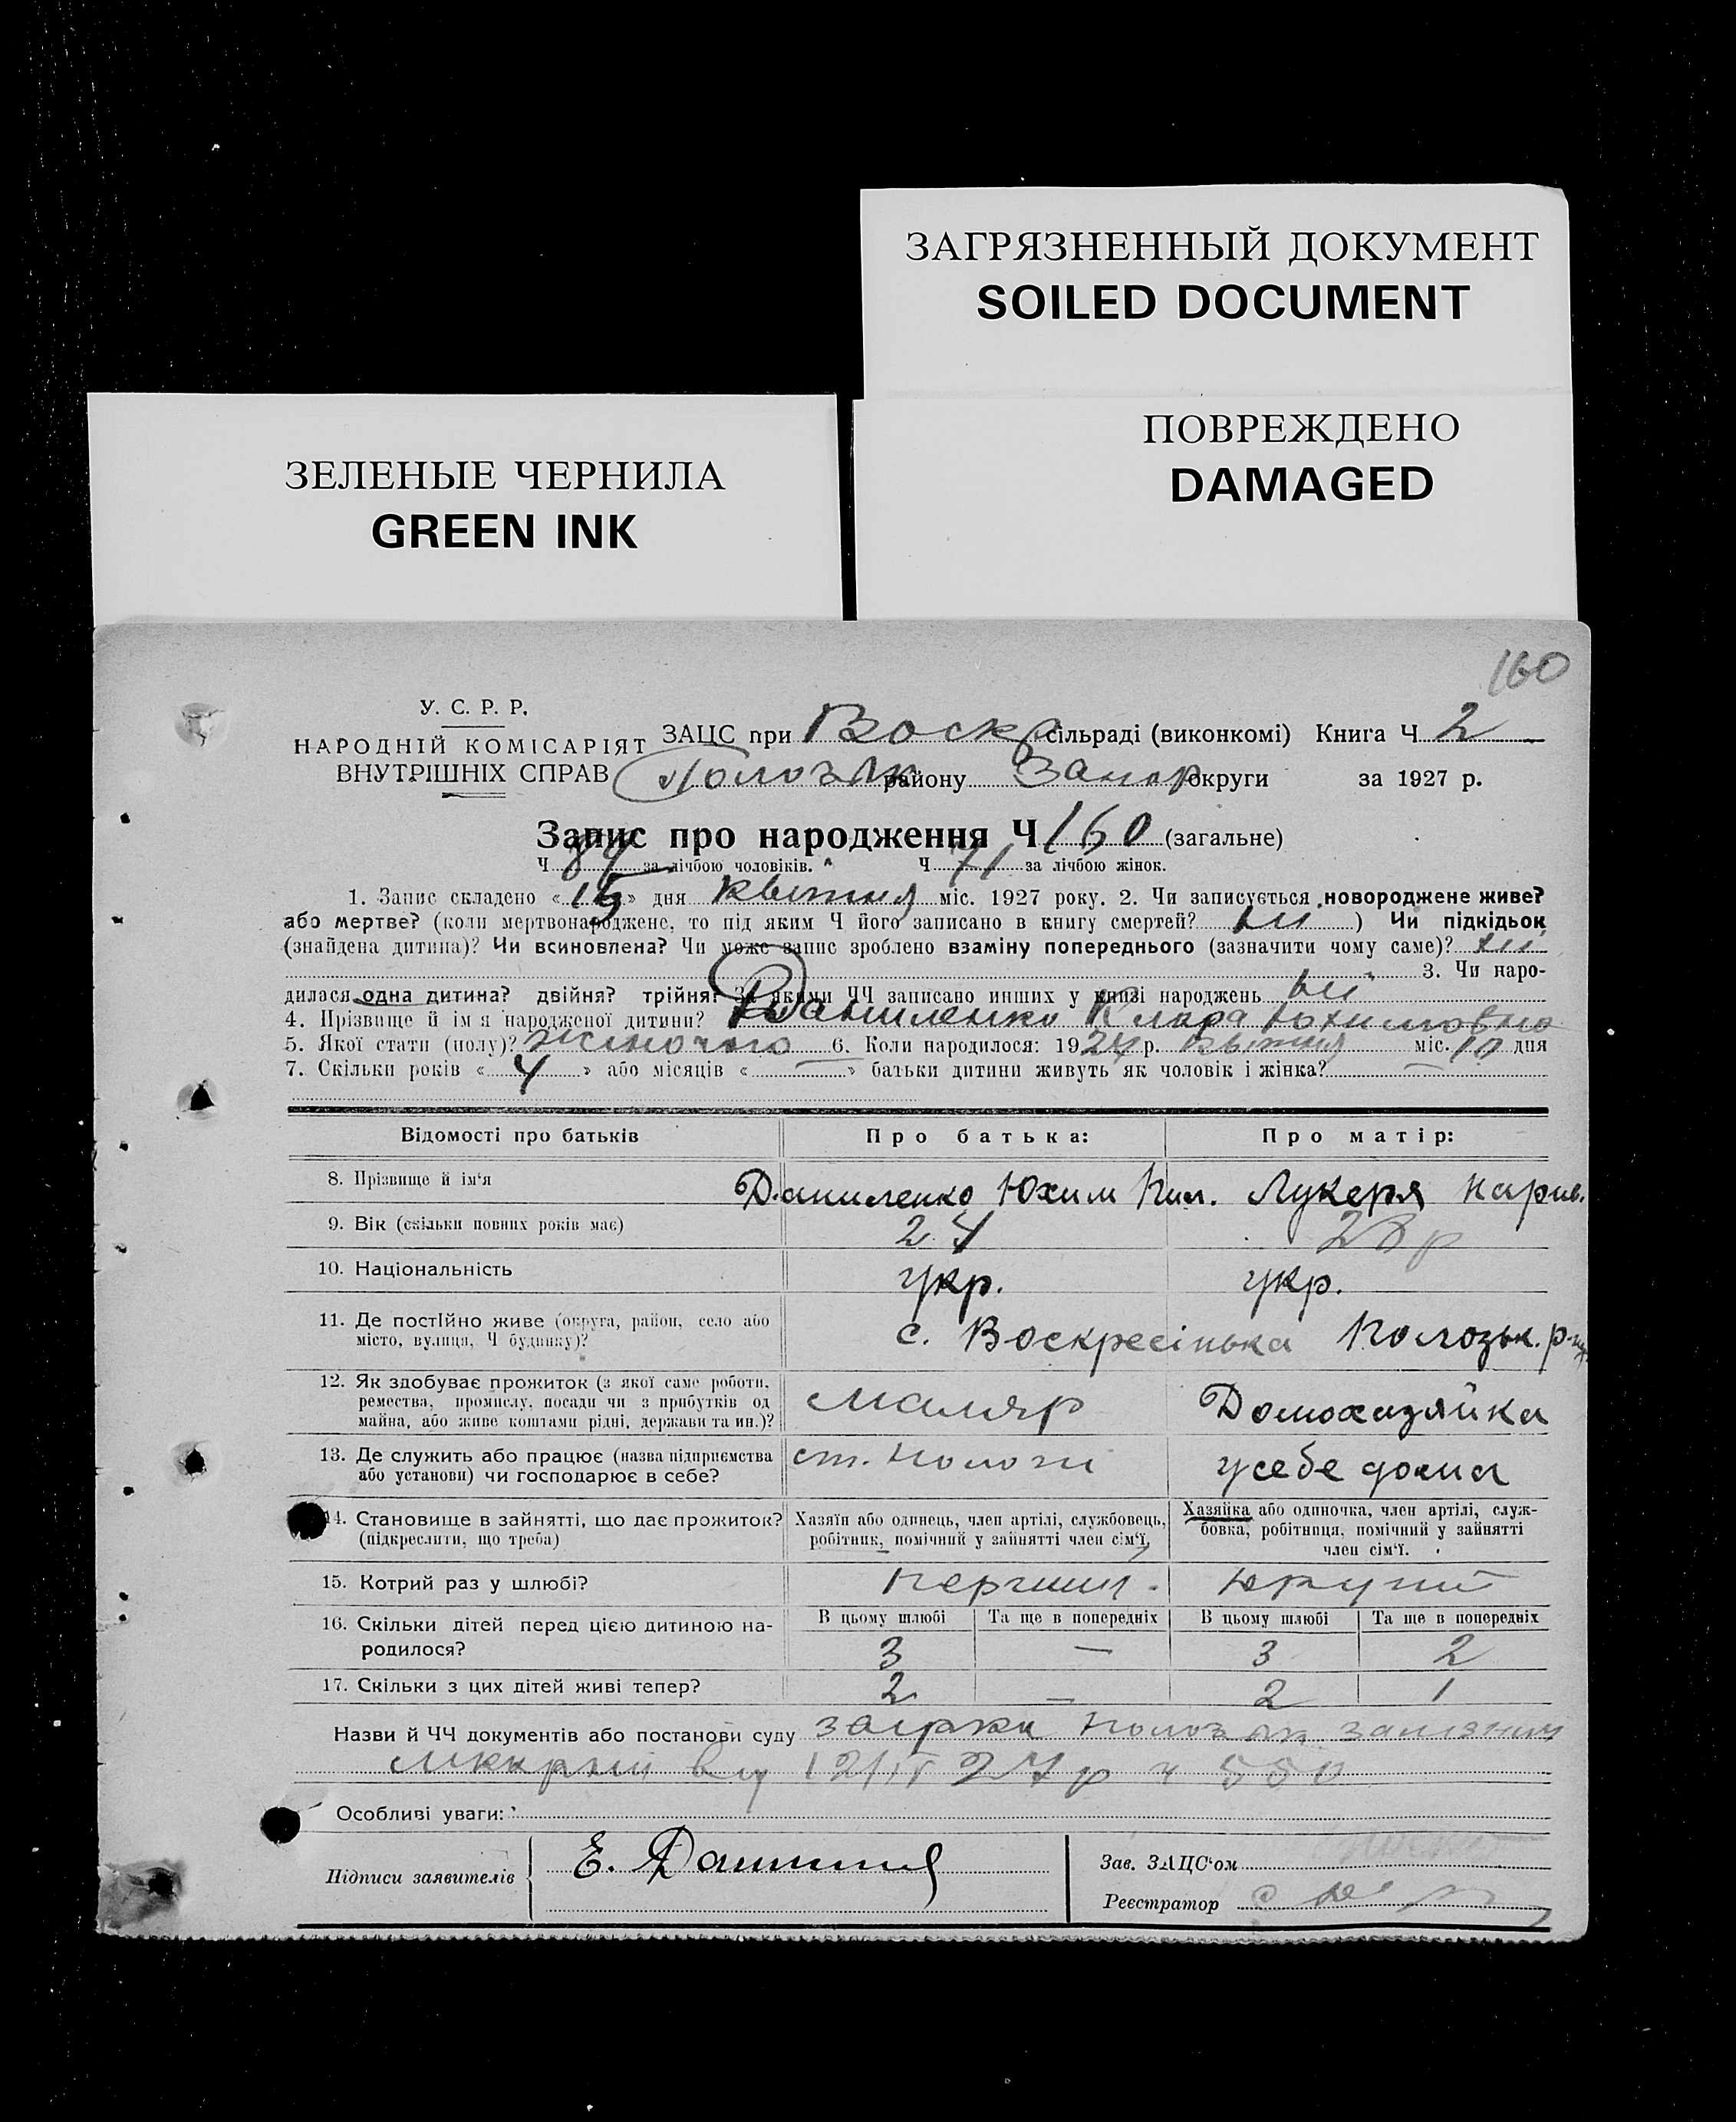 ЗАГРЯЗНЕННЫЙ ДОКУМЕНТ
SOILED DOCUMENT
ПОВРЕЖДЕНО
DAMAGED
ЗЕЛЕНЫЕ ЧЕРНИЛА
GREEN INK
160
У. С. Р. Р.
НАРОДНІЙ КОМІСАРІЯТ
ВНУТРІШНІХ СПРАВ
ЗАЦС при Воскр сільраді (виконкомі) Книга Ч 2
району Запор округи за 1927 р.
Запис про народження Ч 160 (загальне)
Ч 89 за лічбою чоловіків. Ч 71 за лічбою жінок.
1. Запис складено «15» дня квітня міс. 1927 року. 2. Чи записується новороджене живе?
або мертве? (коли мертвонароджене, то під яким Ч його записано в книгу смертей? ні ) Чи підкідьок
(знайдена дитина)? Чи всиновлена? Чи може запис зроблено взаміну попереднього (зазначити чому саме)? ні
3. Чи наро-
дилася одна дитина? двійня? трійня? За якими ЧЧ записано инших у книзі народжень ні
4. Прізвище й ім'я народженої дитини? Даниленко Клара Юхимовна
5. Якої стати (полу)? Жіночого 6. Коли народилося: 1927 р. квітня міс. 10 дня
7. Скільки років « 4 » або місяців « — » батьки дитини живуть як чоловік і жінка? —
Відомості про батьків Про батька: Про матір:
8. Прізвище й ім'я Даниленко Юхим Лукеря
9. Вік (скільки повних років має) 24 28 р
10. Національність укр. укр.
11. Де постійно живе (округа, район, село або
місто, вулиця, Ч будинку)? с. Воскресінька Пологськ. р-ну
12. Як здобуває прожиток (з якої саме роботи,
ремества, промислу, посади чи з прибутків од
майна, або живе коштами рідні, держави та ин.)? маляр Домохазяйка
13. Де служить або працює (назва підприємства
або установи) чи господарює в себе? ст. Пологи у себе дома
14. Становище в зайнятті, що дає прожиток?
(підкреслити, що треба)
Хазяїн або одинець, член артілі, службовець,
робітник, помічний у зайнятті член сім'ї,
Хазяйка або одиночка, член артілі, служ-
бовка, робітниця, помічний у зайнятті
член сім'ї.
15. Котрий раз у шлюбі?
В цьому шлюбі Та ще в попередніх В цьому шлюбі Та ще в попередніх
16. Скільки дітей перед цією дитиною на-
родилося? 3 — 3 2
17. Скільки з цих дітей живі тепер? 2 — 2 1
Назви й ЧЧ документів або постанови суду
від 12/IV 27 р ч 550
Особливі уваги:
Підписи заявителів Е.
Зав. ЗАЦС'ом
Реєстратор